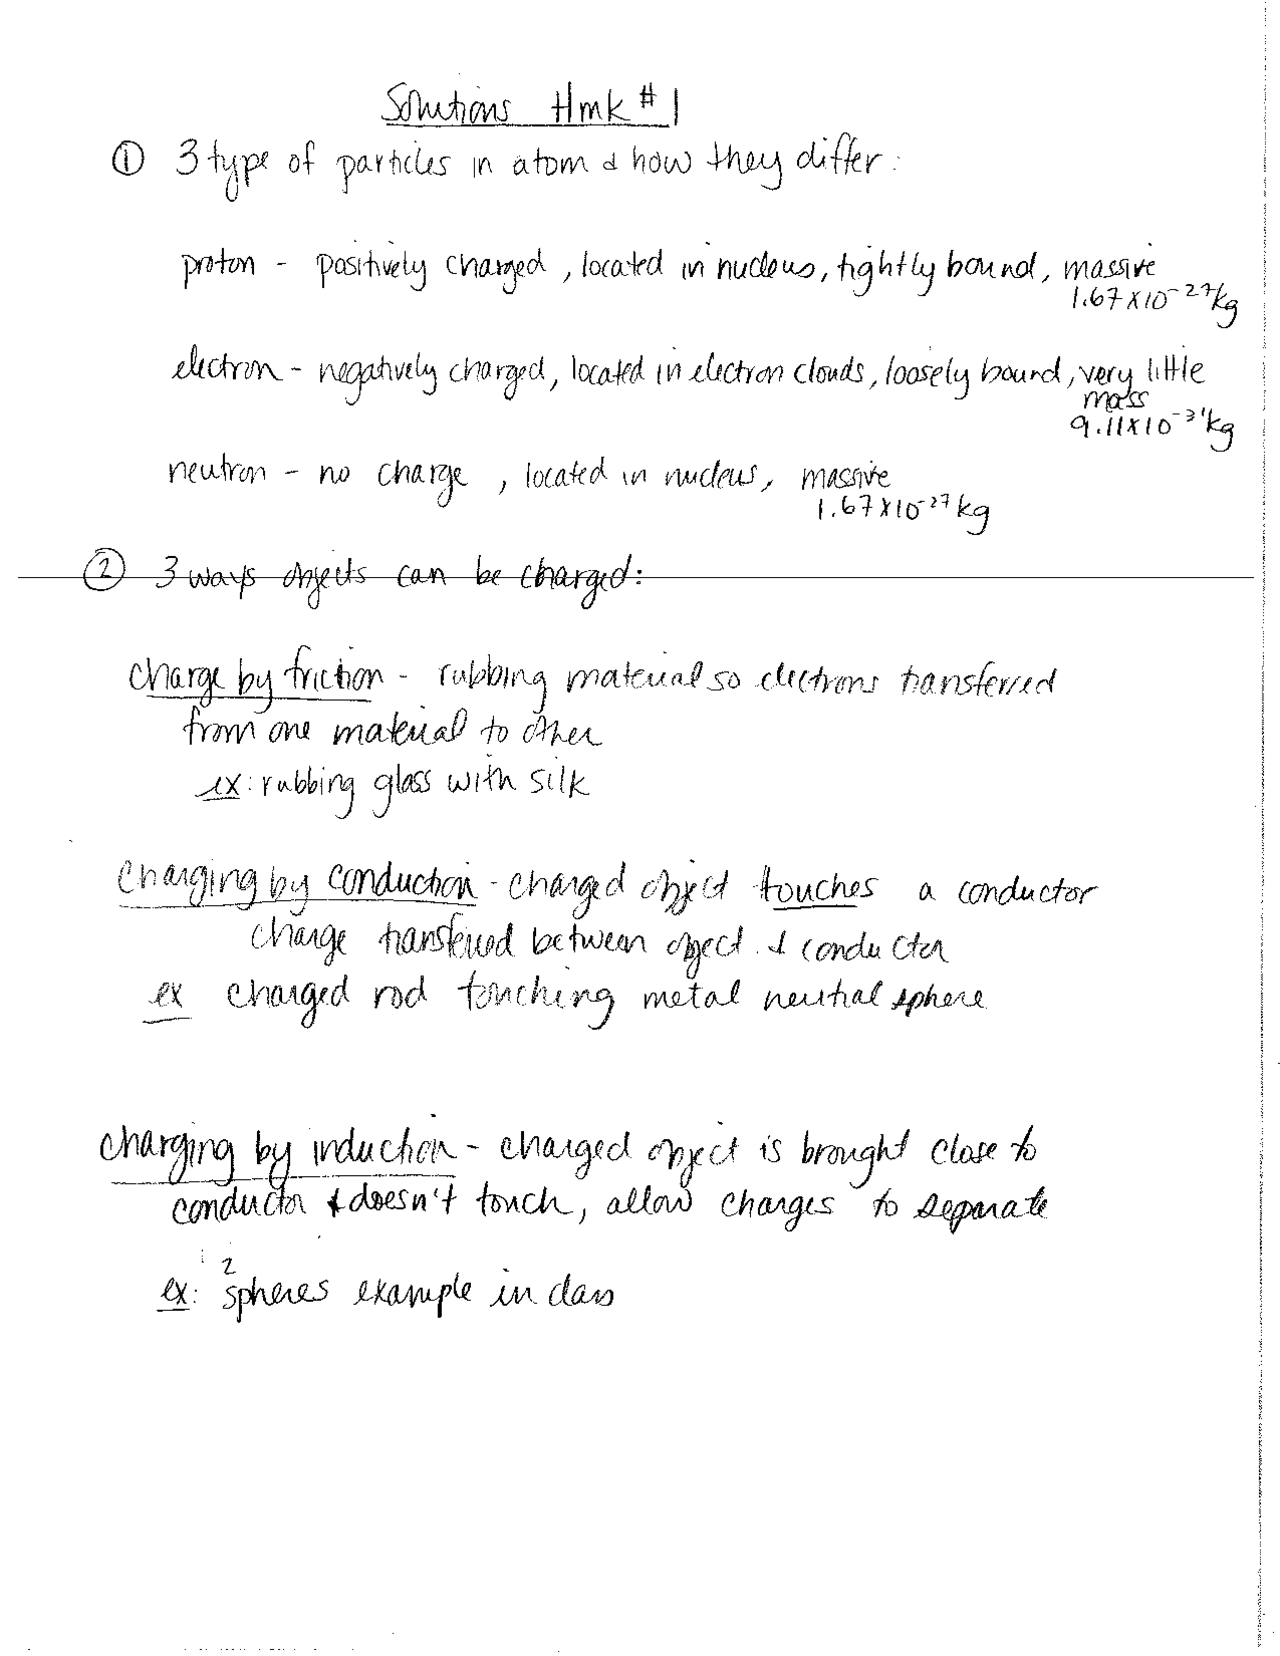 Solutions Hmk #1
① 3 type of particles in atom & how they differ:
proton - positively charged, located in nucleus, tightly bound, massive
1.67 x 10⁻²⁷ kg
electron - negatively charged, located in electron clouds, loosely bound, very little
mass
9.11x10⁻³¹ kg
neutron - no charge, located in nucleus, massive
1.67x10⁻²⁷ kg
② 3 ways objects can be charged:
charge by friction - rubbing material so electrons transferred
from one material to other
ex: rubbing glass with silk
Charging by conduction - charged object touches a conductor
charge transferred between object & conductor
ex charged rod touching metal neutral sphere
charging by induction - charged object is brought close to
conductor & doesn't touch, allow charges to separate
ex: 2 spheres example in class